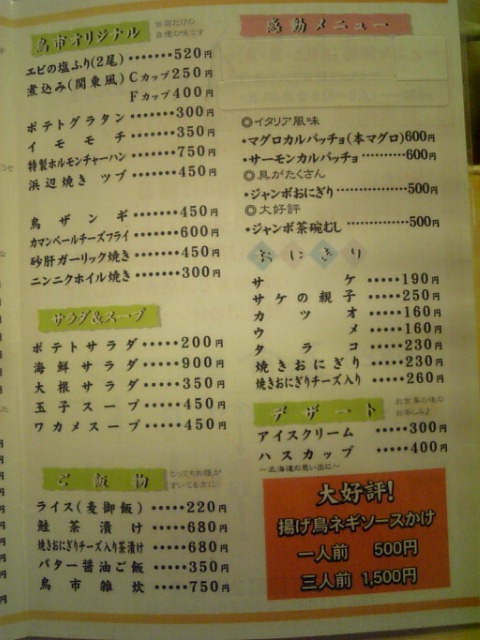 鳥市オリジナル
当店だけの
自慢の味です
エビの塩ふり(2尾)・・・・・520円
煮込み(関東風)Cカップ250円
Fカップ400円
ポテトグラタン・・・・・・・300円
イモモチ・・・・・・350円
特製ホルモンチャーハン・・・・・・750円
浜辺焼きツブ・・・・・・450円
鳥ザンギ・・・・・・450円
カマンベールチーズフライ・・・・・・600円
砂肝ガーリック焼き・・・・・・450円
ニンニクホイル焼き・・・・・・300円
サラダ&スープ
ポテトサラダ・・・・・200円
海鮮サラダ・・・・・900円
大根サラダ・・・・・350円
玉子スープ・・・・・450円
ワカメスープ・・・・・450円
ご飯物
とってもお腹が
すいてる方に
ライス(麦御飯)・・・・・220円
鮭茶漬け・・・・・680円
焼きおにぎりチーズ入り茶漬け・・・・・680円
バター醤油ご飯・・・・・350円
鳥市雑炊・・・・・750円
感動メニュー
◎イタリア風味
・マグロカルパッチョ(本マグロ)600円
・サーモンカルパッチョ・・・・・・・・・600円
◎具がたくさん
・ジャンボおにぎり・・・・・・・・・・・・500円
◎大好評
・ジャンボ茶碗むし・・・・・・・・・・・・500円
おにぎり
サケ・・・・・190円
サケの親子・・・・・250円
カツオ・・・・・160円
ウメ・・・・・160円
タラコ・・・・・230円
焼きおにぎり・・・・・230円
焼きおにぎりチーズ入り・・・・・260円
デザート
お食事の後の
お楽しみ♪
アイスクリーム・・・・・300円
ハスカップ・・・・・400円
〜北海道の思い出に〜
大好評!
揚げ鳥ネギソースかけ
一人前 500円
三人前 1,500円